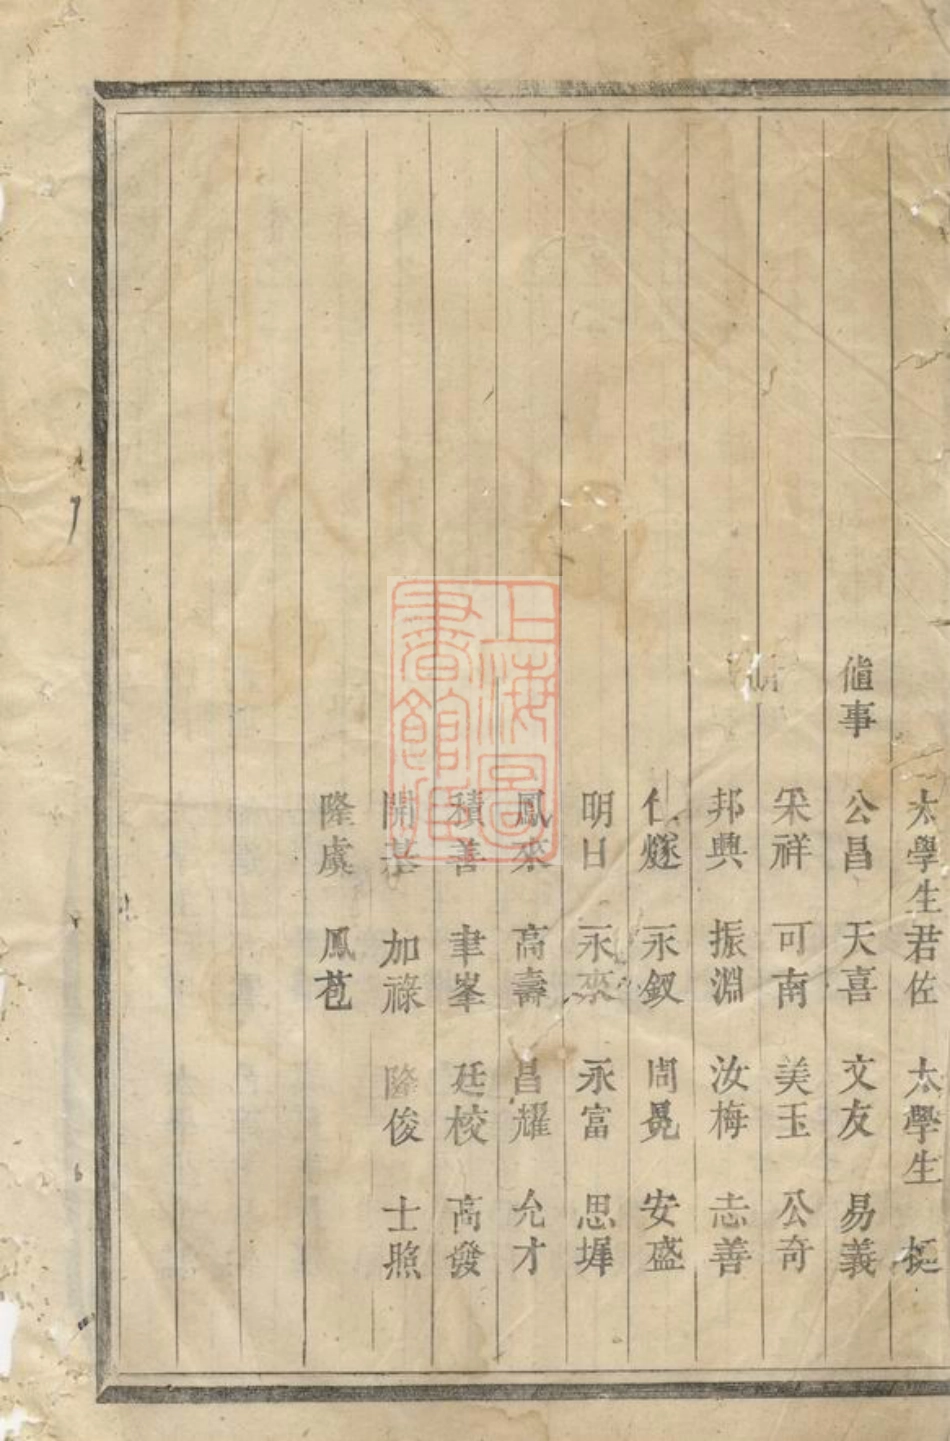 太學生君佐 太學生 梃
値事 公昌 天喜 文友 易義
采祥 可南 美玉 公奇
邦興 振淵 汝梅 志善
仁燧 永釵 周晃 安盛
明日 永來 永富 思墀
鳳來 高壽 昌耀 允才
積善 聿峯 廷校 高發
開基 加祿 隆俊 士照
隆虞 鳳苞
上海圖書館藏